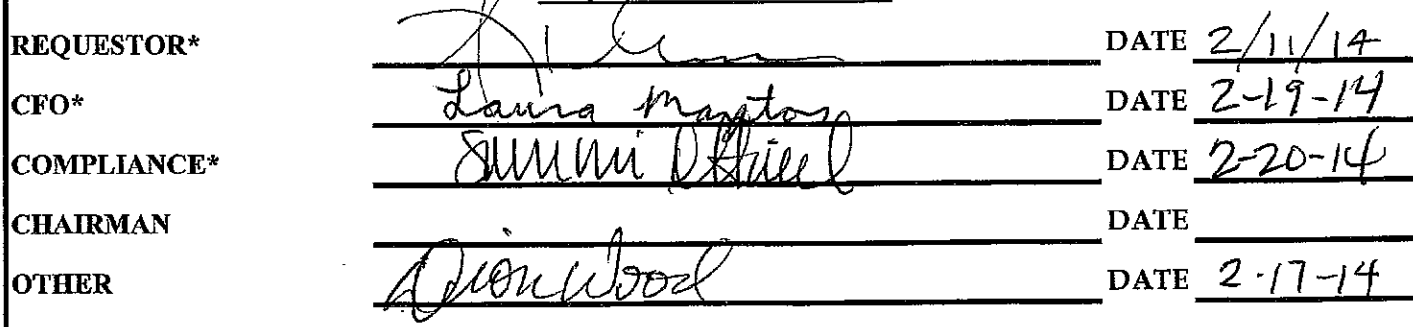 REQUESTOR* DATE 2/11/14
CFO* Laura DATE 2-19-14
COMPLIANCE* DATE 2-20-14
CHAIRMAN DATE
OTHER Dion Wood DATE 2-17-14